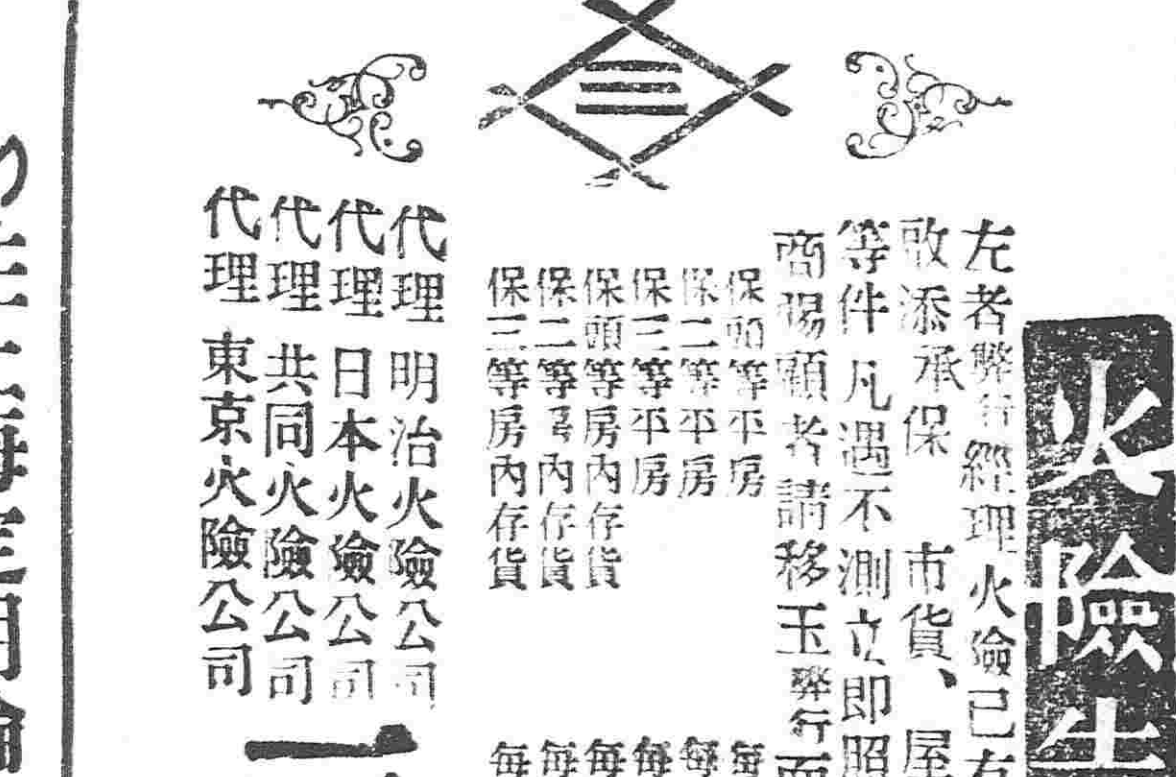 火險
左者弊行經理火險已有
敢添承保 市貨、屋
等件凡遇不測立即照
商賜顧者請移玉弊行面
保頭等平房 每
保二等平房 每
保三等平房 每
保頭等房內存貨 每
保二等房內存貨 每
保三等房內存貨 每
代理 明治火險公司
代理 日本火險公司
代理 共同火險公司
代理 東京火險公司
三